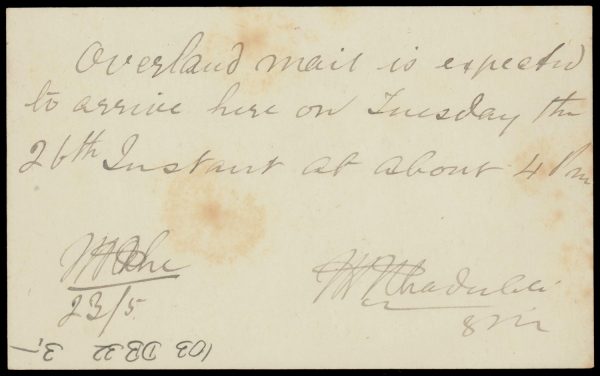 Overland mail is expected
to arrive here on Tuesday the
26th Instant at about 4 Pm
23/5
103 DB 32 3,-